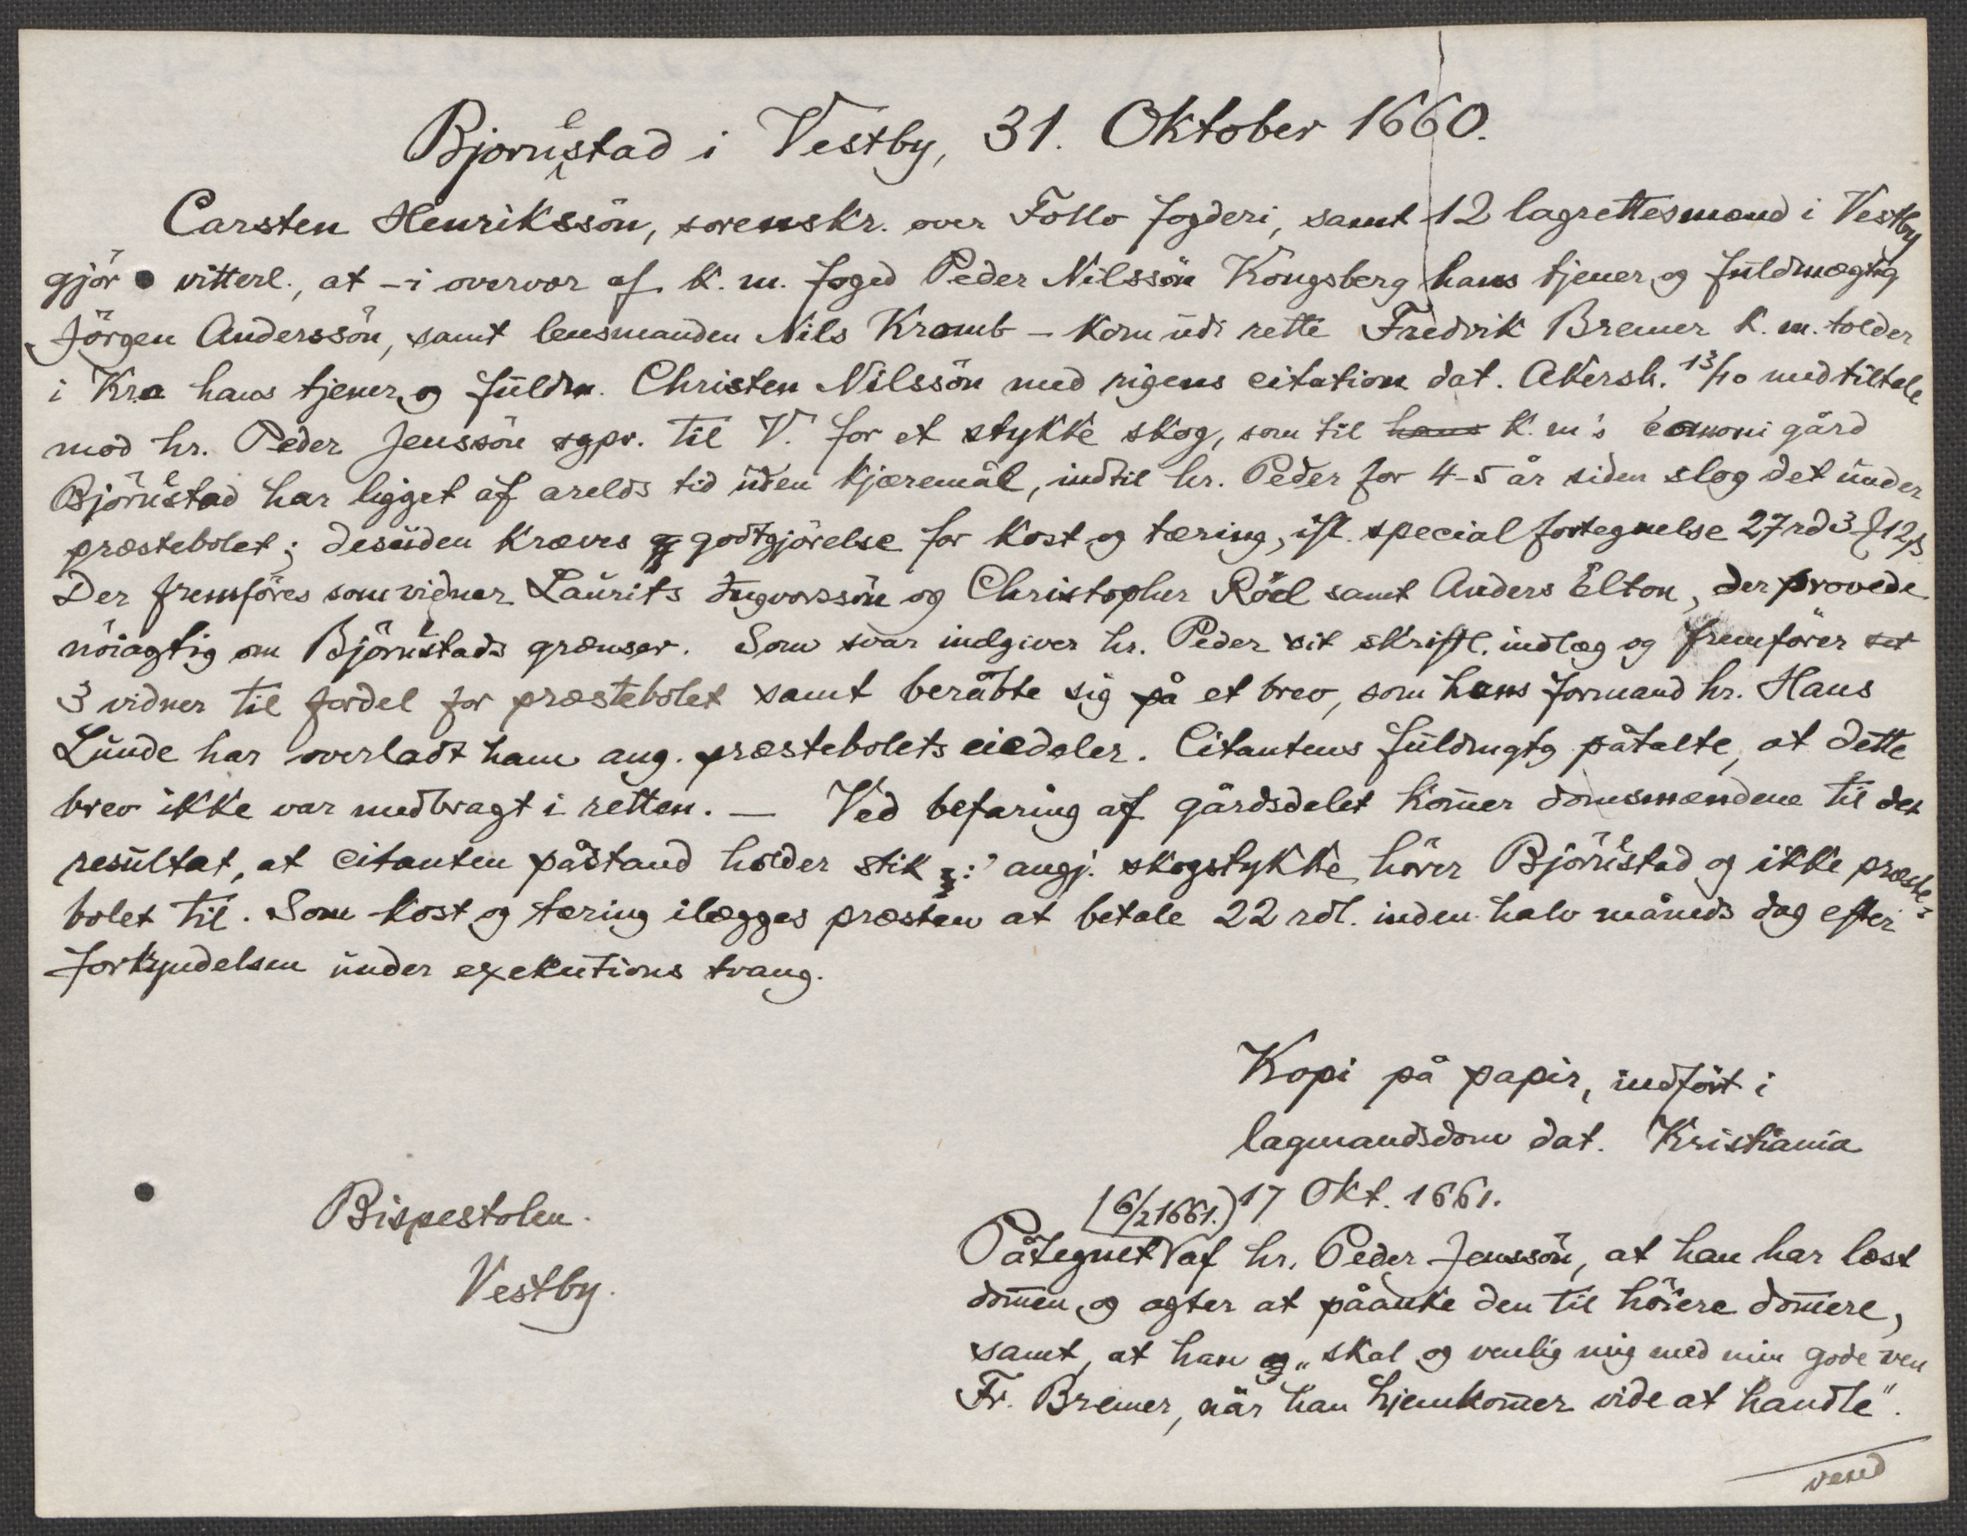 Bjornestad i Vestby, 31. Oktober 1660.
Carsten Henrikssön, sorenskr. over Follo fogderi, samt 12 lagrettesmænd i Vestby
gjör vitterl., at – i overvær af k. m. foged Peder Nilssön Kongsberg hans tjener og fuldmægtig
Jörgen Anderssön, samt lensmanden Nils Kramb – kom udi rette Fredrik Bremer k. m. tolder
i Kra hans tjener og fuldm. Christen Nilssön med rigens citation dat. Akersh. 13/10 med tiltale
mod hr. Peder Jenssön sgpr. til V. for et stykke skog, som til hans k. m's gård
Björnestad har ligget af arelds tid uden kjæremål, indtil hr. Peder for 4-5 år siden slog det under
præstebolet; desuden kræves godtgjörelse for kost og tæring, ifl. special fortegnelse 27 rd 3 ƒ 12 β
Der fremföres som vidner Laurits Ingvorssön og Christopher Röel samt Anders Elton, der prövede
nöiagtig om Björnestads grænser. Som svar indgiver hr. Peder sit skriftl. indlæg og fremförer
3 vidner til fordel for præstebolet samt beråbte sig på et brev, som hans formand hr. Hans
Lunde har overladt ham ang. præstebolets eiedeler. Citantens fuldmgtg påtalte, at dette
brev ikke var medbragt i retten. — Ved befaring af gårdsdelet kom̄er domsmændene til det
resultat, at citanten påstand holder stik ɔ: angj. skogstykke hörer Björnestad og ikke præste-
bolet til. Som kost og tæring ilægges præsten at betale 22 rdl. inden halv måneds dag efter
forkyndelsen under exekutions tvang.
Kopi på papir, indfört i
lagmandsdom dat. Kristiania
17 Okt. 1661.
Bispestolen.
Vestby.
(6/2 1661.)
Påtegnet af hr. Peder Jenssön, at han har læst
dom̄en og agter at påanke den til höiere dom̄ere,
samt, at han „skal og venlig mig med min gode ven
Fr. Bremer, når han hjemkom̄er vide at handle".
vend